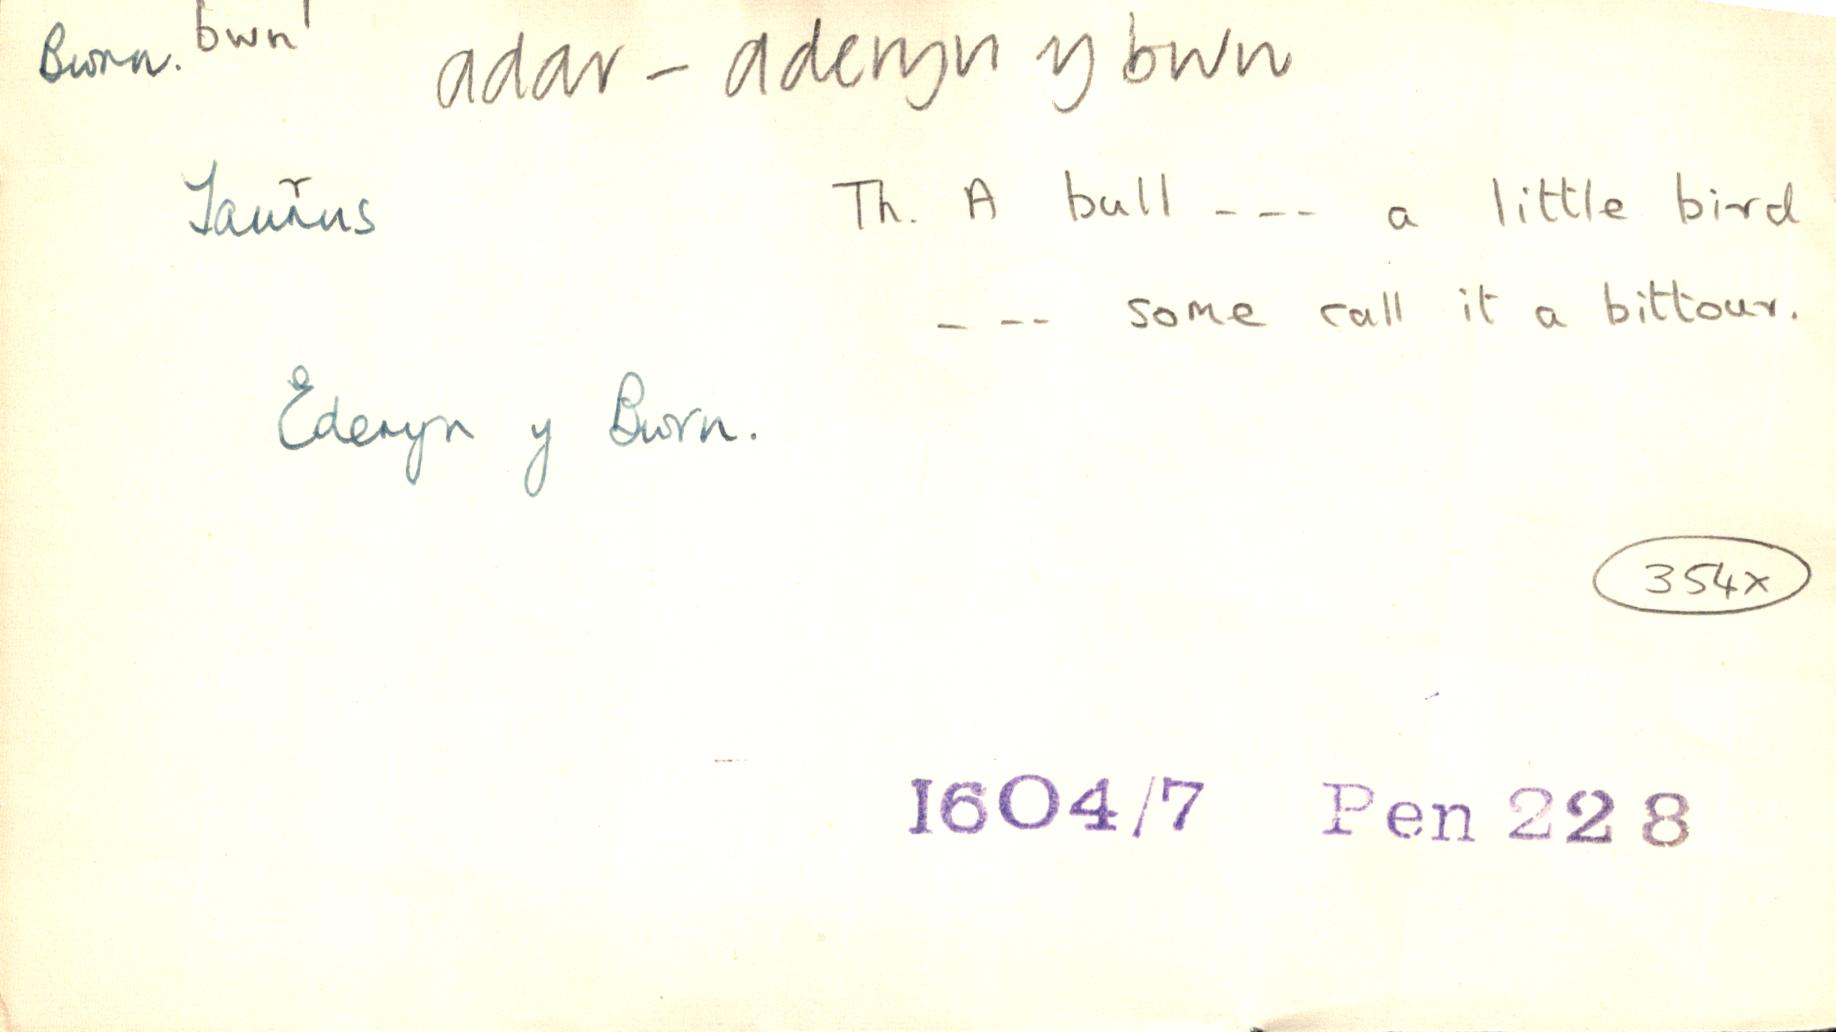 Bwn. bwn¹ adar – aderyn y bwn
Taurus Th. A bull --- a little bird
--- some call it a bittour.
Ederyn y Bwn.
354x
1604/7 Pen 228